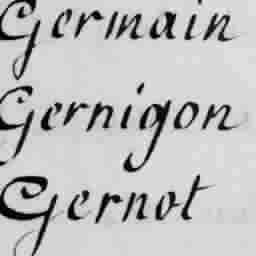 Germain
Gernigon
Gernot